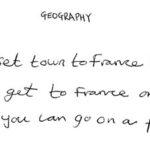 GEOGRAPHY
set town to France
get to France on
you can go on a f